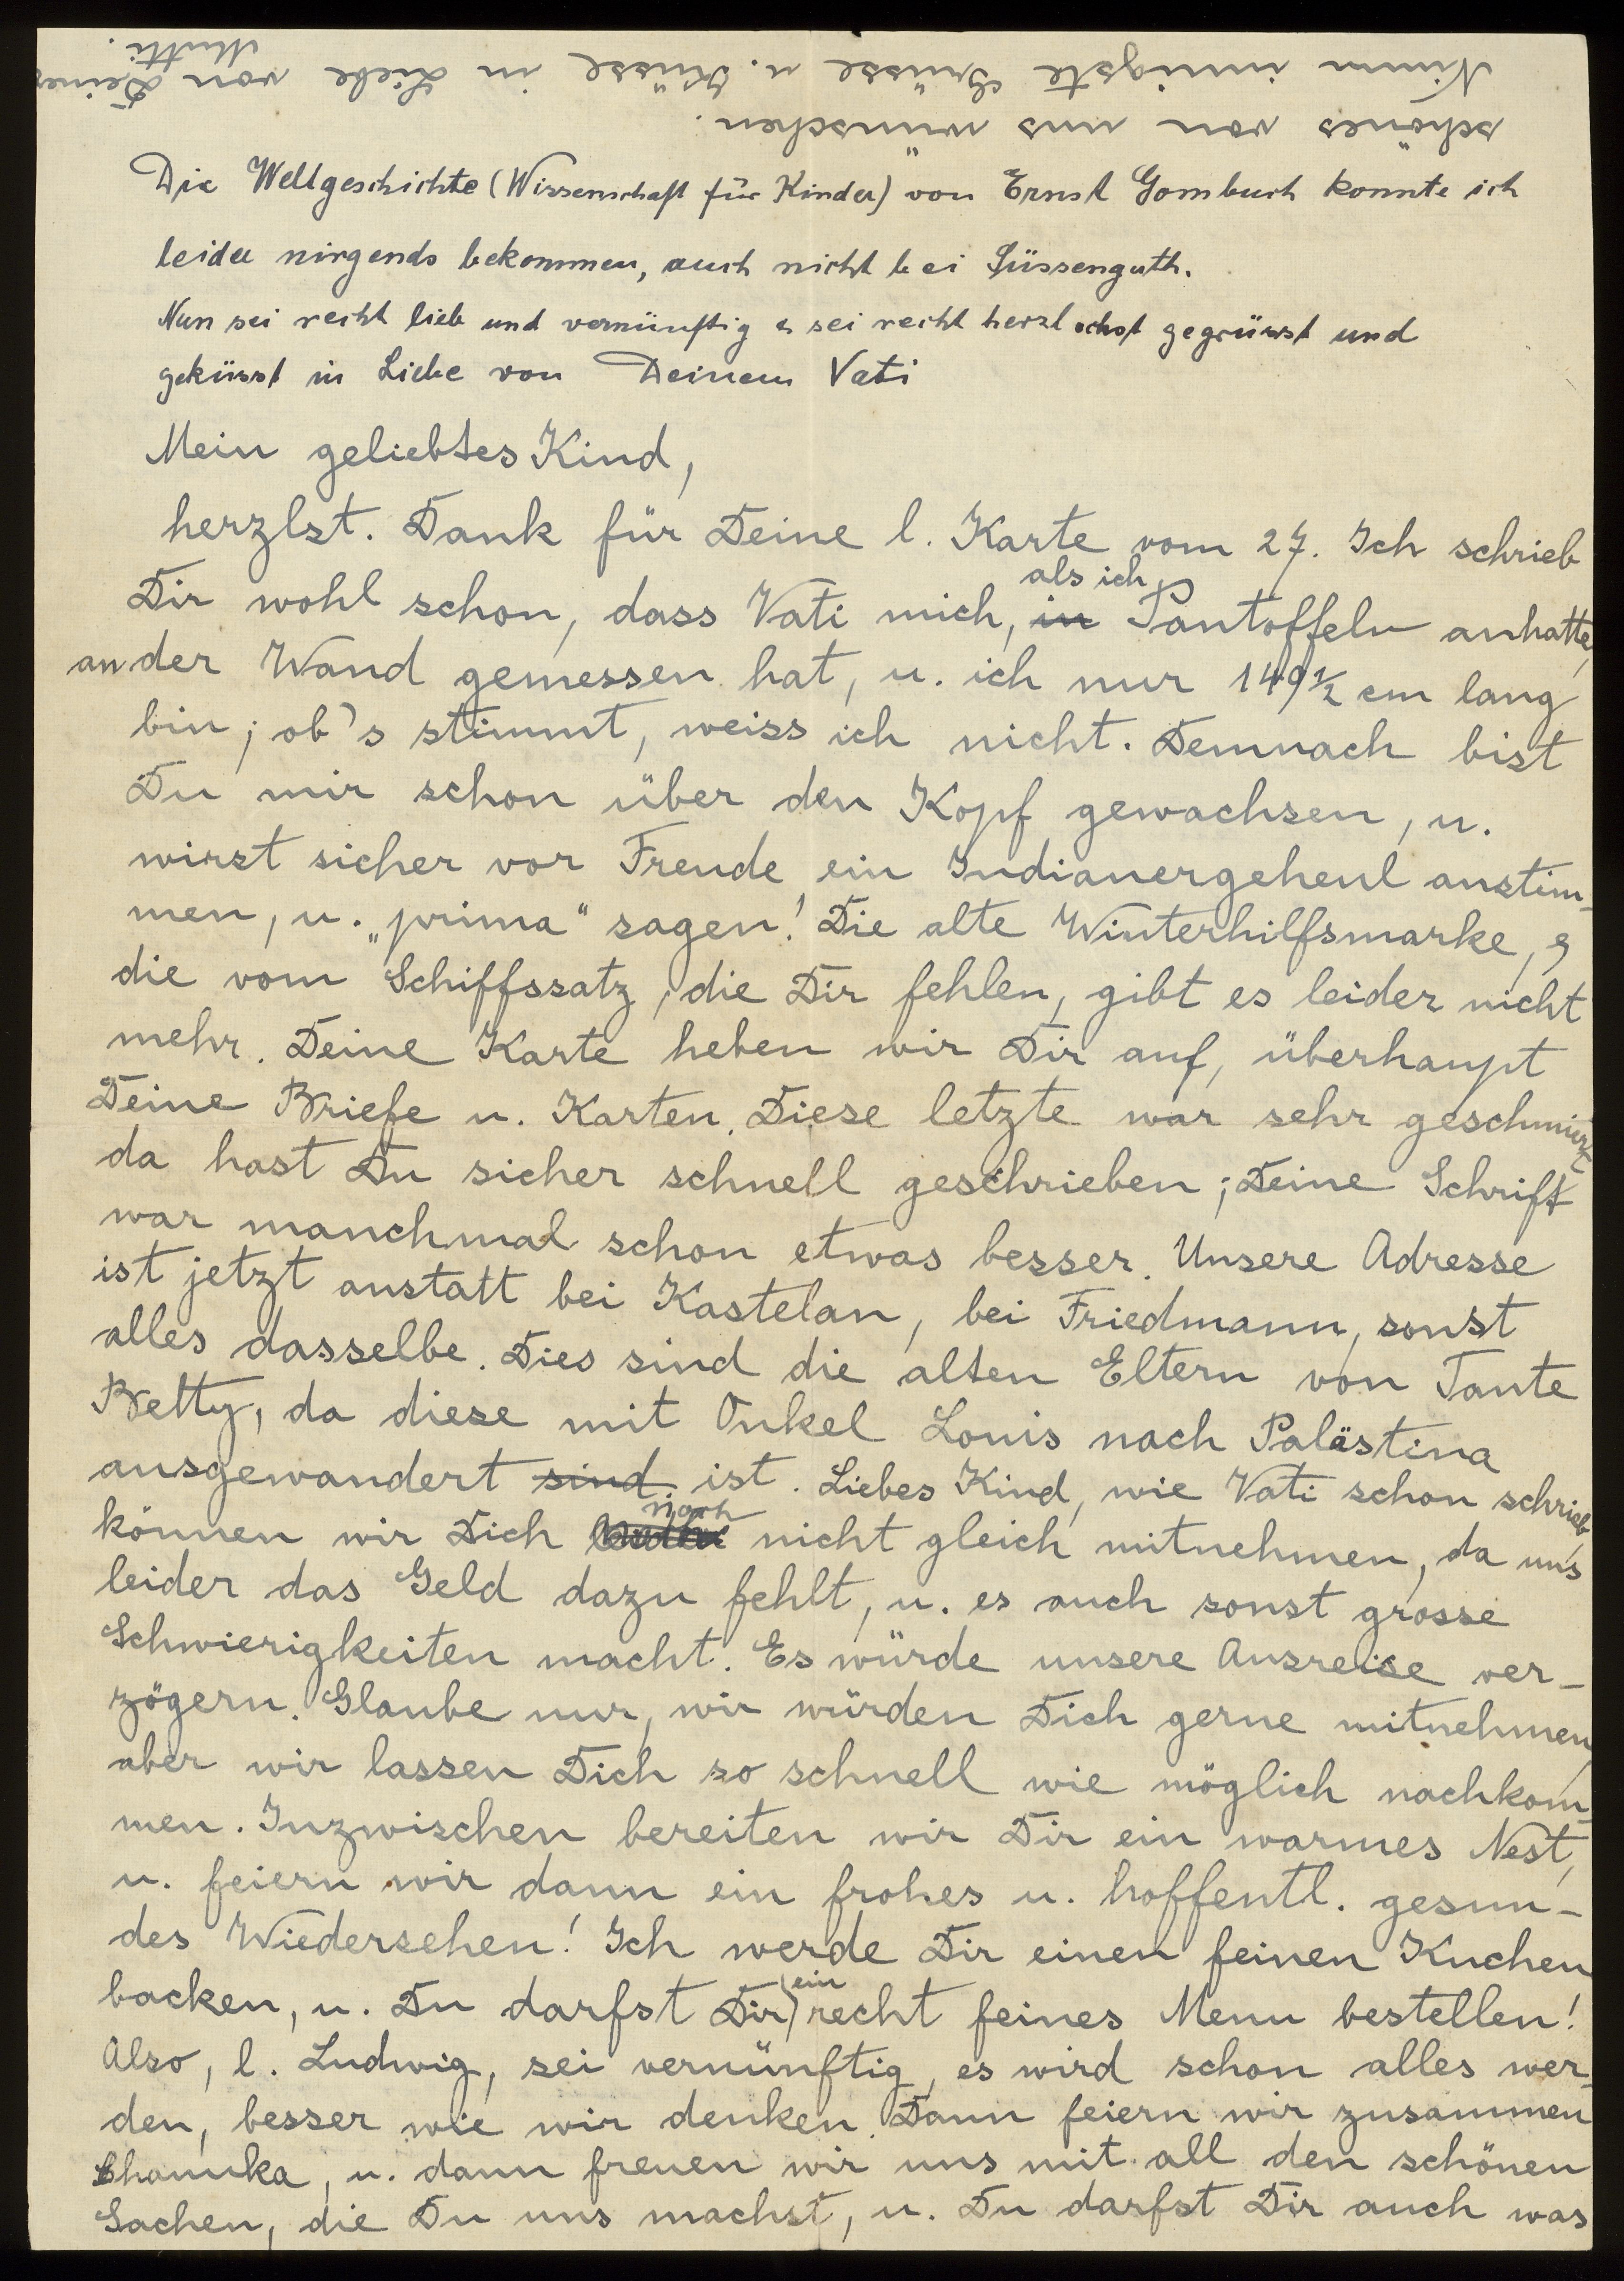 Die Weltgeschichte (Wissenschaft für Kinder) von Ernst Gombrich konnte ich
leider nirgends bekommen, auch nicht bei Süssenguth.
Nun sei recht lieb und vernünftig & sei recht herzlichst gegrüsst und
geküsst in Liebe von Deinem Vati
Mein geliebtes Kind,
herzlst. Dank für Deine l. Karte vom 27. Ich schrieb
Dir wohl schon, dass Vati mich, als ich Pantoffeln anhatte,
an der Wand gemessen hat, u. ich nur 149½ cm lang
bin; ob's stimmt, weiss ich nicht. Demnach bist
Du mir schon über den Kopf gewachsen, u.
wirst sicher vor Freude ein Indianergeheul anstim-
men, u. „prima" sagen! Die alte Winterhilfsmarke, &
die vom Schiffssatz, die Dir fehlen, gibt es leider nicht
mehr. Deine Karte heben wir Dir auf, überhaupt
Deine Briefe u. Karten. Diese letzte war sehr geschmiert
da hast Du sicher schnell geschrieben; Deine Schrift
war manchmal schon etwas besser. Unsere Adresse
ist jetzt anstatt bei Kastelan, bei Friedmann, sonst
alles dasselbe. Dies sind die alten Eltern von Tante
Betty, da diese mit Onkel Louis nach Palästina
ausgewandert sind ist. Liebes Kind, wie Vati schon schrieb,
können wir Dich noch nicht gleich mitnehmen, da uns
leider das Geld dazu fehlt, u. es auch sonst grosse
Schwierigkeiten macht. Es würde unsere Ausreise ver-
zögern. Glaube nur, wir würden Dich gerne mitnehmen,
aber wir lassen Dich so schnell wie möglich nachkom-
men. Inzwischen bereiten wir Dir ein warmes Nest,
u. feiern wir dann ein frohes u. hoffentl. gesun-
des Wiedersehen! Ich werde Dir einen feinen Kuchen
backen, u. Du darfst Dir ein recht feines Menu bestellen!
Also, l. Ludwig, sei vernünftig, es wird schon alles wer-
den, besser wie wir denken. Dann feiern wir zusammen
Chanuka, u. dann freuen wir uns mit all den schönen
Sachen, die Du uns machst, u. Du darfst Dir auch was
schönes von uns wünschen.
Nimm innigste Grüsse u. Küsse in Liebe von Deiner
Mutti.